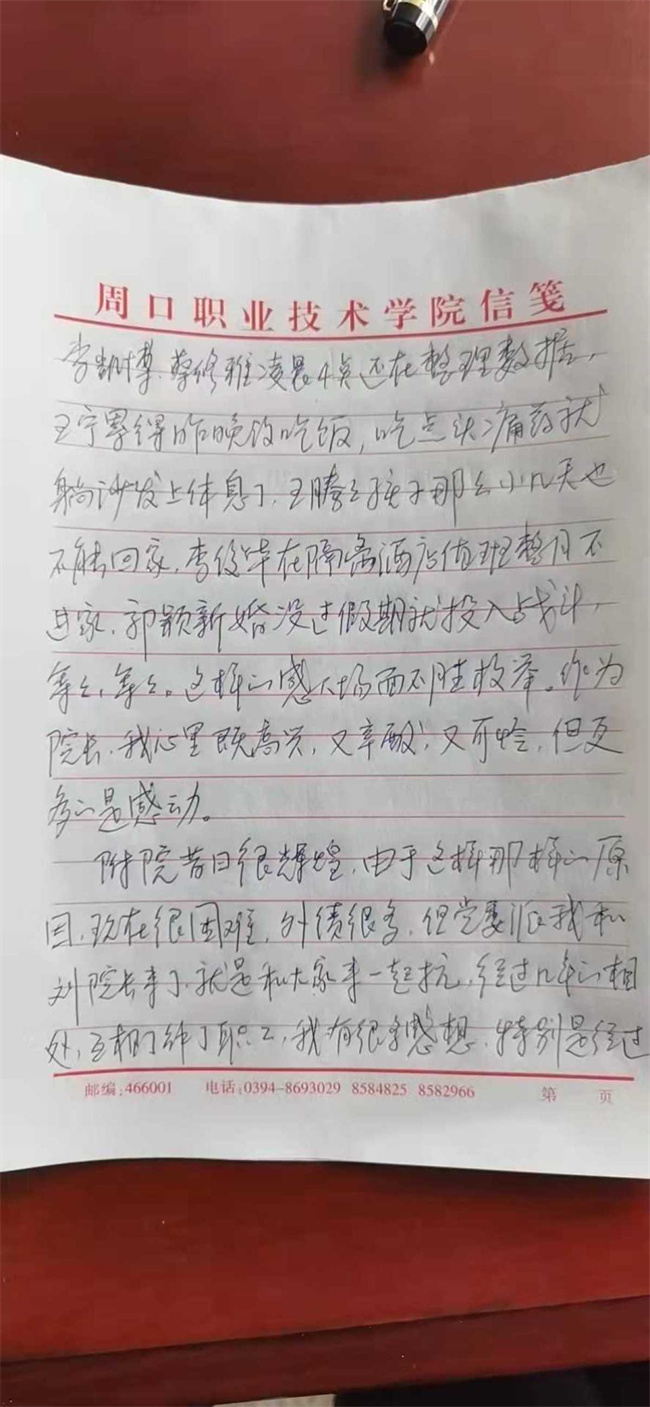 周口职业技术学院信笺
李凯博、蔡修雅凌晨4点还在整理数据，
王宁累得昨晚没吃饭，吃点头痛药就
躺沙发上休息了，王腾飞孩子那么小几天也
不能回家，李俊华在隔离酒店值班整月不
进家，郭颖新婚没过假期就投入战斗，
等等，等等。这样的感人场面不胜枚举。作为
院长，我心里既高兴，又辛酸，又可怜，但更
多的是感动。
附院昔日很辉煌，由于这样那样的原
因，现在很困难，外债很多，但党委派我和
刘院长来了，就是和大家来一起扛，经过几年的相
处，互相了解了职工，我有很多感想，特别是经过
邮编：466001 电话：0394-8693029 8584825 8582966 第 页